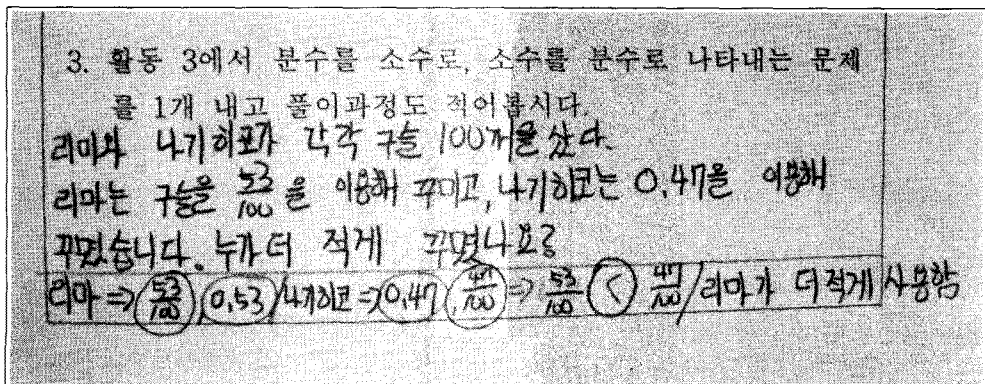 3. 활동 3에서 분수를 소수로, 소수를 분수로 나타내는 문제
를 1개 내고 풀이과정도 적어봅시다.
리마와 나기히코가 각각 구슬 100개을 샀다.
리마는 구슬을 53/100 을 이용해 꾸미고, 나기히코는 0.47을 이용해
꾸몄습니다. 누가 더 적게 꾸몄나요?
리마 => 53/100, 0.53 / 나기히코 => 0.47, 47/100 => 53/100 < 47/100 / 리마가 더 적게 사용함